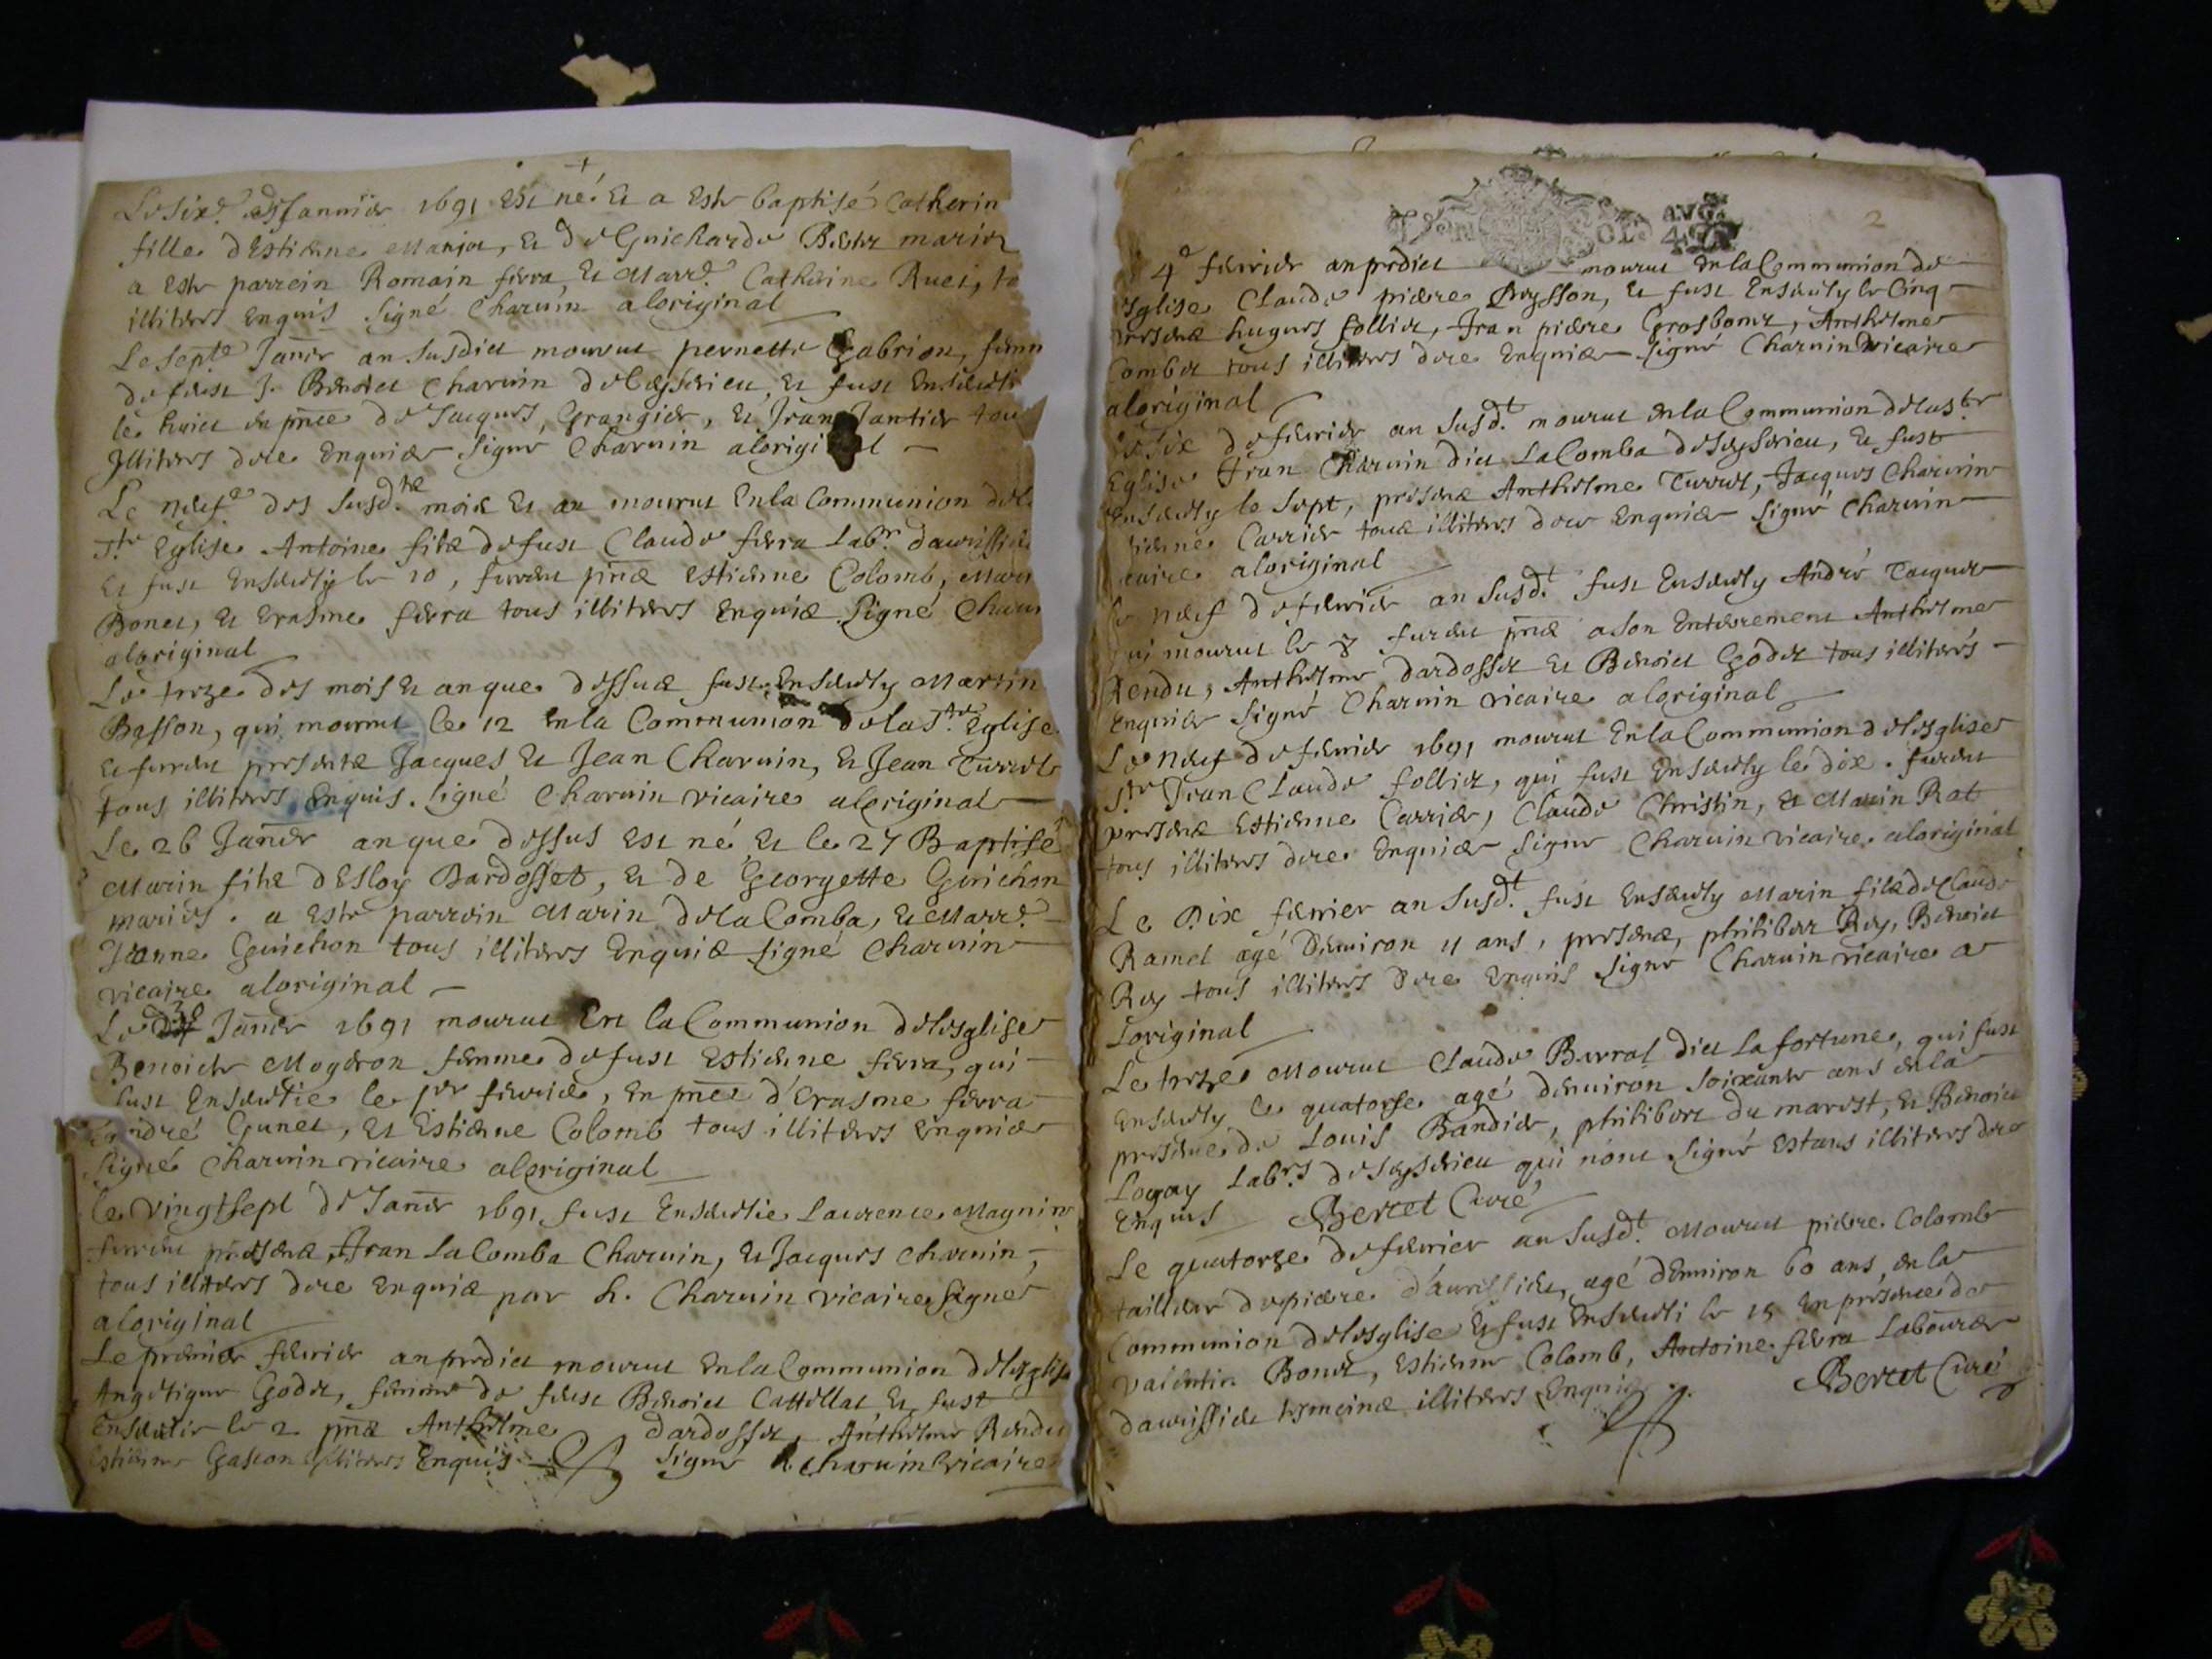 Le sixe. de Jannier 1691 est né et a este baptisé Catherin
fille d'Estienne et de Guicharde mariez
a este parrein Romain ferra, et Marre. Catherine
illiteres enquis signé Charuin aloriginal
Le septe Janer an susdict mourut pernette Gabrion, femm
de feust J. Benoict Charuin de Seyssrieu, et fust enseveli
le huict en pnce de Jacques, Grangier, et Jean Jantier tou
Illiteres de ce enquiz signe Charuin aloriginal
Le neufe des susd. mois et an mourut en la Communion de l
Ste Eglise Antoine filz de fust Claude ferra labr.
et fust ensevely le 10, furent pnz Estienne Colomb,
Bonet, et Erasme ferra tous illiteres enquiz signé Charui
aloriginal
Le treze des mois et an que dessuz fust ensevely Martin
Basson, qui mourut le 12 en la Communion de la Ste Eglise
et furent presentz Jacques et Jean Charuin, et Jean Turrel
tous illiteres enquis. signé Charuin vicaire aloriginal
Le 26 Janer an que dessus est né et le 27 Baptisé
Marin filz d'Esloy Dardosset, et de Georgette Guichon
mariés. a este parrein Marin de la Comba, et Marre.
Jeanne Guichon tous illiteres enquiz signé Charuin
vicaire aloriginal
Le Janer 1691 mourut en la Communion de lesglise
Benoicte Moyeron femme de fust Estienne ferra, qui
fust ensevelie le 1er feurier, en pnce d'Erasme ferra
André Gunet, et Estienne Colomb tous illiteres enquiz
signé Charuin vicaire aloriginal
le vingtsept de Janer 1691 fust ensevelie Laurence Magnin
furent presenz Jean La Comba Charuin, et Jacques Charuin,
tous illiteres de ce enquiz par h. Charuin vicaire signé
aloriginal
Le premier feurier an predict mourut en la Communion de lesglise
Angelique Godet, femme de feust Benoict Cattillat et fust
ensevelie le 2 pnz Anthelme Dardosset, Anthelme Rendu
Estienne Gascon illiteres enquis signe h Charuin vicaire
2
4e feurier an predict mourut en la Communion de
lsglise Claude pierre Peysson, et fust ensevely le cinq
presenz hugues follier, Jean pierre Grosbonet, Anthelme
Combet tous illiteres de ce enquiz signé Charuin vicaire
aloriginal
Le six de feurier an susdt. mourut en la Communion de la Ste
Eglise Jean Charuin dict La Comba de Seyssrieu, et fust
ensevely le sept, presenz Anthelme Turrel, Jacques Charuin
Carrier touz illiteres de ce enquiz signé Charuin
vicaire aloriginal
Le neuf de feurier an susdt. fust ensevely André Jacquet
qui mourut le 8 furent pnz a son enterrement Anthelme
Rendu, Anthelme Dardosset et Benoict Godet tous illiterés
enquiz signé Charuin vicaire aloriginal
Le neuf de feurier 1691 mourut en la Communion de lesglise
Ste Jean Claude follier, qui fust ensevely le dix. furent
presenz Estienne Carrier, Claude Christin, et Marin Rat
tous illiteres de ce enquiz signe Charuin vicaire aloriginal
Le Dix feurier an susdt. fust ensevely Marin filz de Claude
Ramel agé d'enuiron 11 ans, presenz, philibert Rey, Benoict
Rey tous illiteres de ce enquis signe Charuin vicaire a
Loriginal
Le treze mourut Claude Barral dict la fortune, qui fust
ensevely le quatorse agé d'enuiron soixante ans en la
presence de Louis Bandier, philibert du marest, et Benoict
Logay labrs de Seyssrieu qui n'ont signé estans illiteres de ce
enquis Bertet Curé
Le quatorze de feurier an susdt. mourut pierre Colomb
tailleur de pierre agé d'enuiron 60 ans, en la
Communion de lesglise et fust ensevely le 15 en presence de
valentin Bonet, Estienne Colomb, Antoine ferra laboure
tesmoinz illiteres enquiz Bertet Curé